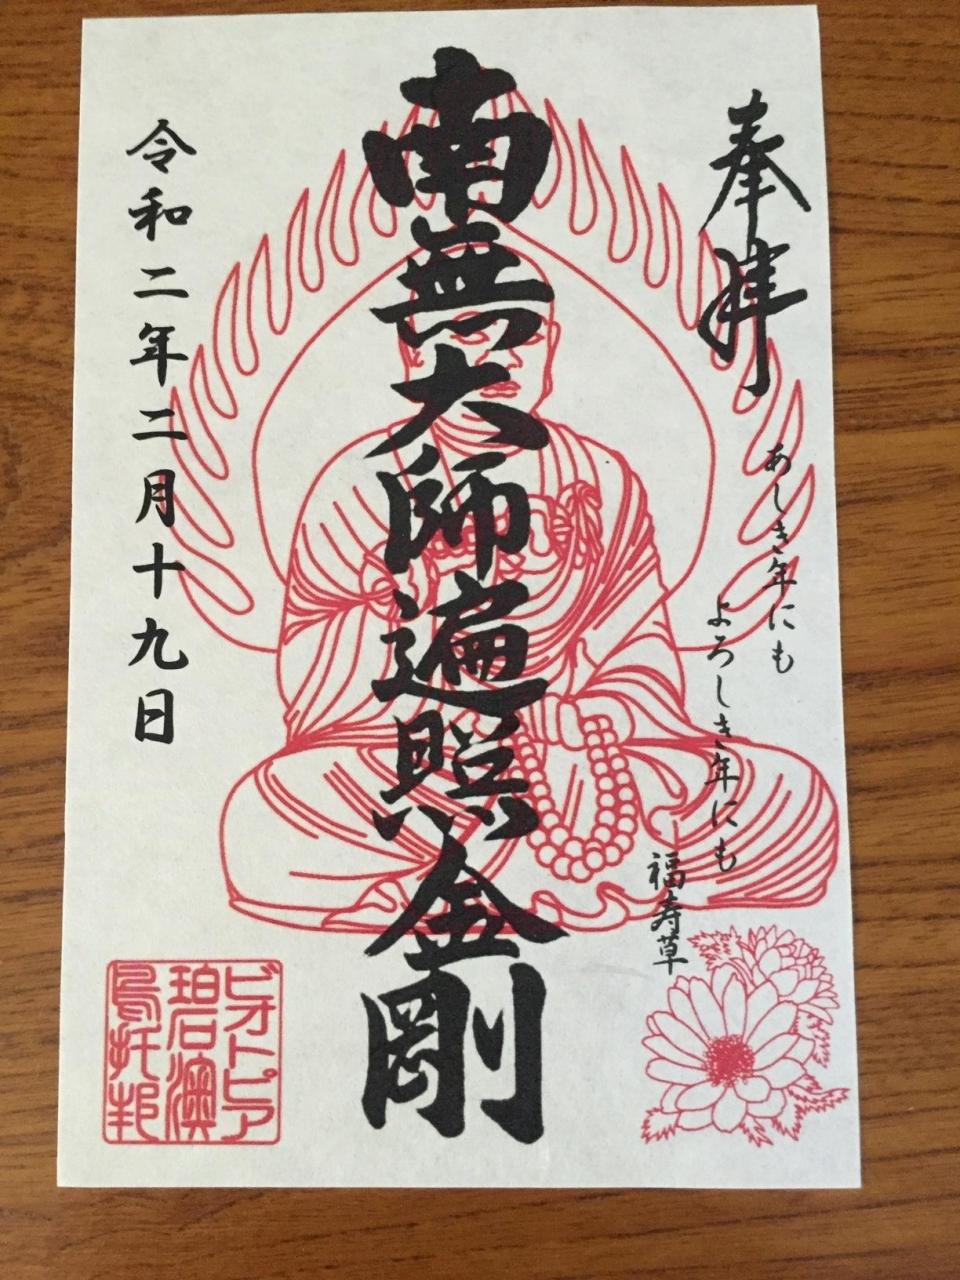 奉拝
あしき年にも
よろしき年にも
福寿草
南無大師遍照金剛
令和二年二月十九日
ビオトピア
碧澳
烏托邦